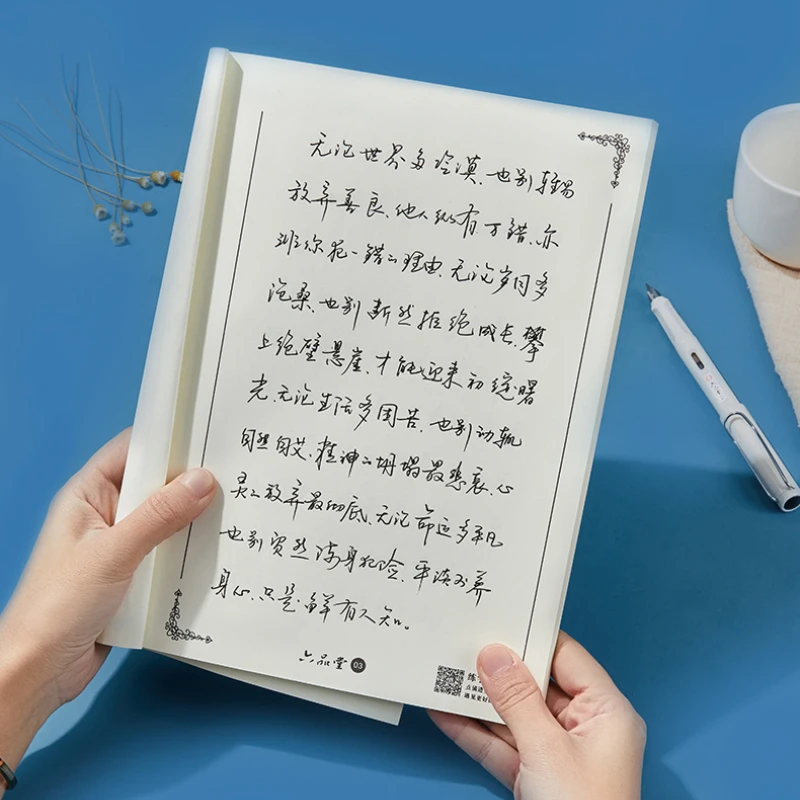 无论世界多冷漠,也别轻易
放弃善良,他人纵有万错,亦
非你犯一错的理由,无论岁月多
沧桑,也别断然拒绝成长,攀
上绝壁悬崖,才能迎来初绽曙
光,无论生活多困苦,也别动辄
自怨自艾,精神的坍塌最悲哀,心
灵的放弃最彻底,无论命运多平凡
也别贸然涉身犯险,平淡可养
身心,只是鲜有人知。
六品堂 03
练
点
遇见更好